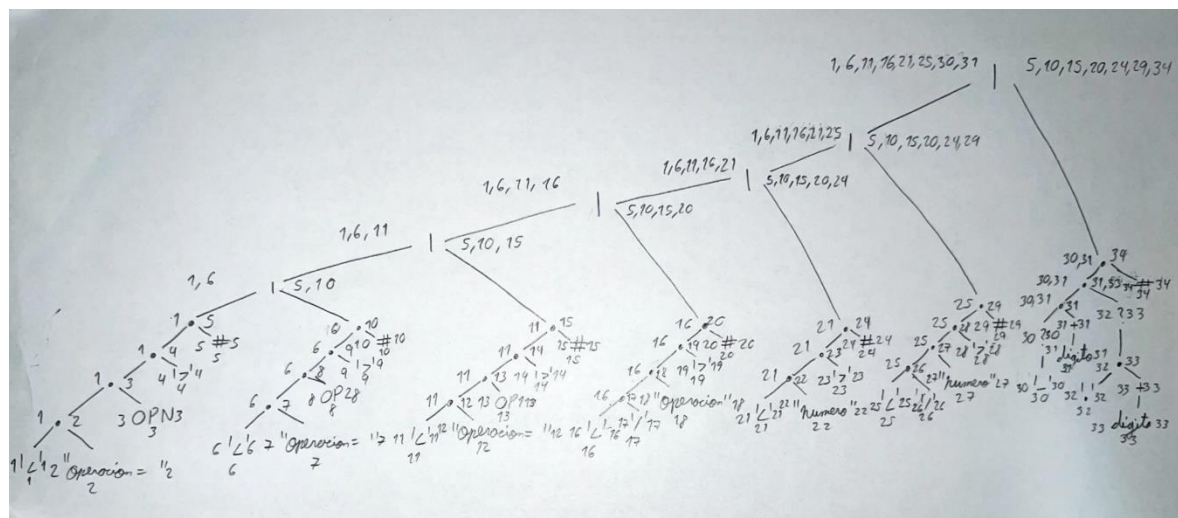 1, 6, 11, 16, 21, 25, 30, 31 | 5, 10, 15, 20, 24, 29, 34
1, 6, 11, 16, 21, 25 | 5, 10, 15, 20, 24, 29
1, 6, 11, 16, 21 | 5, 10, 15, 20, 24
1, 6, 11, 16 | 5, 10, 15, 20
1, 6, 11 | 5, 10, 15
1, 6 | 5, 10
1 . 5
5 # 5
5
1 . 4
4 '>' 4
4
1 . 3
3 OPN 3
3
1 . 2
1 '<' 1
1
2 "Operacion = " 2
2
6 . 10
10 # 10
10
6 . 9
9 '>' 9
9
6 . 8
8 OP2 8
8
6 . 7
6 '<' 6
6
7 "Operacion = " 7
7
11 . 15
15 # 15
15
11 . 14
14 '>' 14
14
11 . 13
13 OP1 13
13
11 . 12
11 '<' 11
11
12 "Operacion = " 12
12
16 . 20
20 # 20
20
16 . 19
19 '>' 19
19
16 . 18
18 "Operacion" 18
18
16 . 17
16 '<' 16
16
17 '/' 17
17
21 . 24
24 # 24
24
21 . 23
23 '>' 23
23
21 . 22
21 '<' 21
21
22 "numero" 22
22
25 . 29
29 # 29
29
25 . 28
28 '>' 28
28
25 . 27
27 "numero" 27
27
25 . 26
25 '<' 25
25
26 '/' 26
26
30, 31 . 34
34 # 34
34
30, 31 . 31, 33
32 ? 33
30, 31 . 31
30 ? 30
31 + 31
30 '-' 30
30
31 digito 31
31
32 . 33
32 '.' 32
32
33 + 33
33 digito 33
33